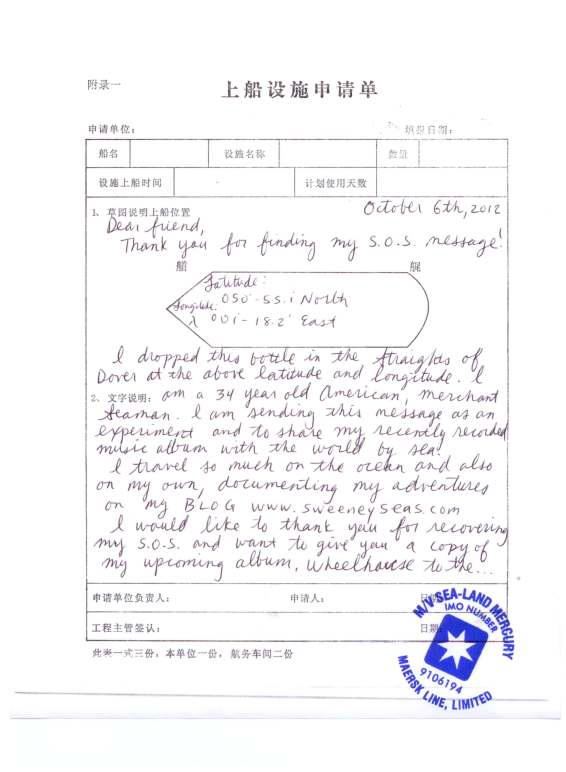 附录一
上船设施申请单
申请单位：
填报日期：
船名
设施名称
数量
设施上船时间
计划使用天数
1、草图说明上船位置
October 6th, 2012
Dear friend,
Thank you for finding my S.O.S. message!
艏
艉
Latitude:
050°-55.1 North
Longitude:
λ 001°-18.2' East
I dropped this bottle in the Straights of
Dover at the above latitude and longitude. I
2、文字说明：
am a 34 year old American, merchant
seaman. I am sending this message as an
experiment and to share my recently recorded
music album with the world by sea.
I travel so much on the ocean and also
on my own, documenting my adventures
on my BLOG www.sweeneyseas.com
I would like to thank you for recovering
my S.O.S. and want to give you a copy of
my upcoming album, Wheelhouse to the...
申请单位负责人：
申请人：
日期
工程主管签认：
日期
此表一式三份，本单位一份，航务车间二份
M/V SEA-LAND MERCURY
IMO NUMBER
9106194
MAERSK LINE, LIMITED